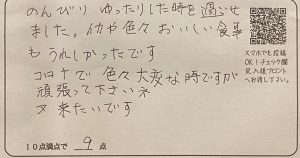 のんびり ゆったりした時を過ごせ
ました。イカや色々おいしい食事
もうれしかったです
コロナで色々大変な時ですが
頑張って下さいネ
又来たいです
10点満点で 9 点
スマホでも投稿
OK!チェック欄
記入後フロント
へお渡し下さい。